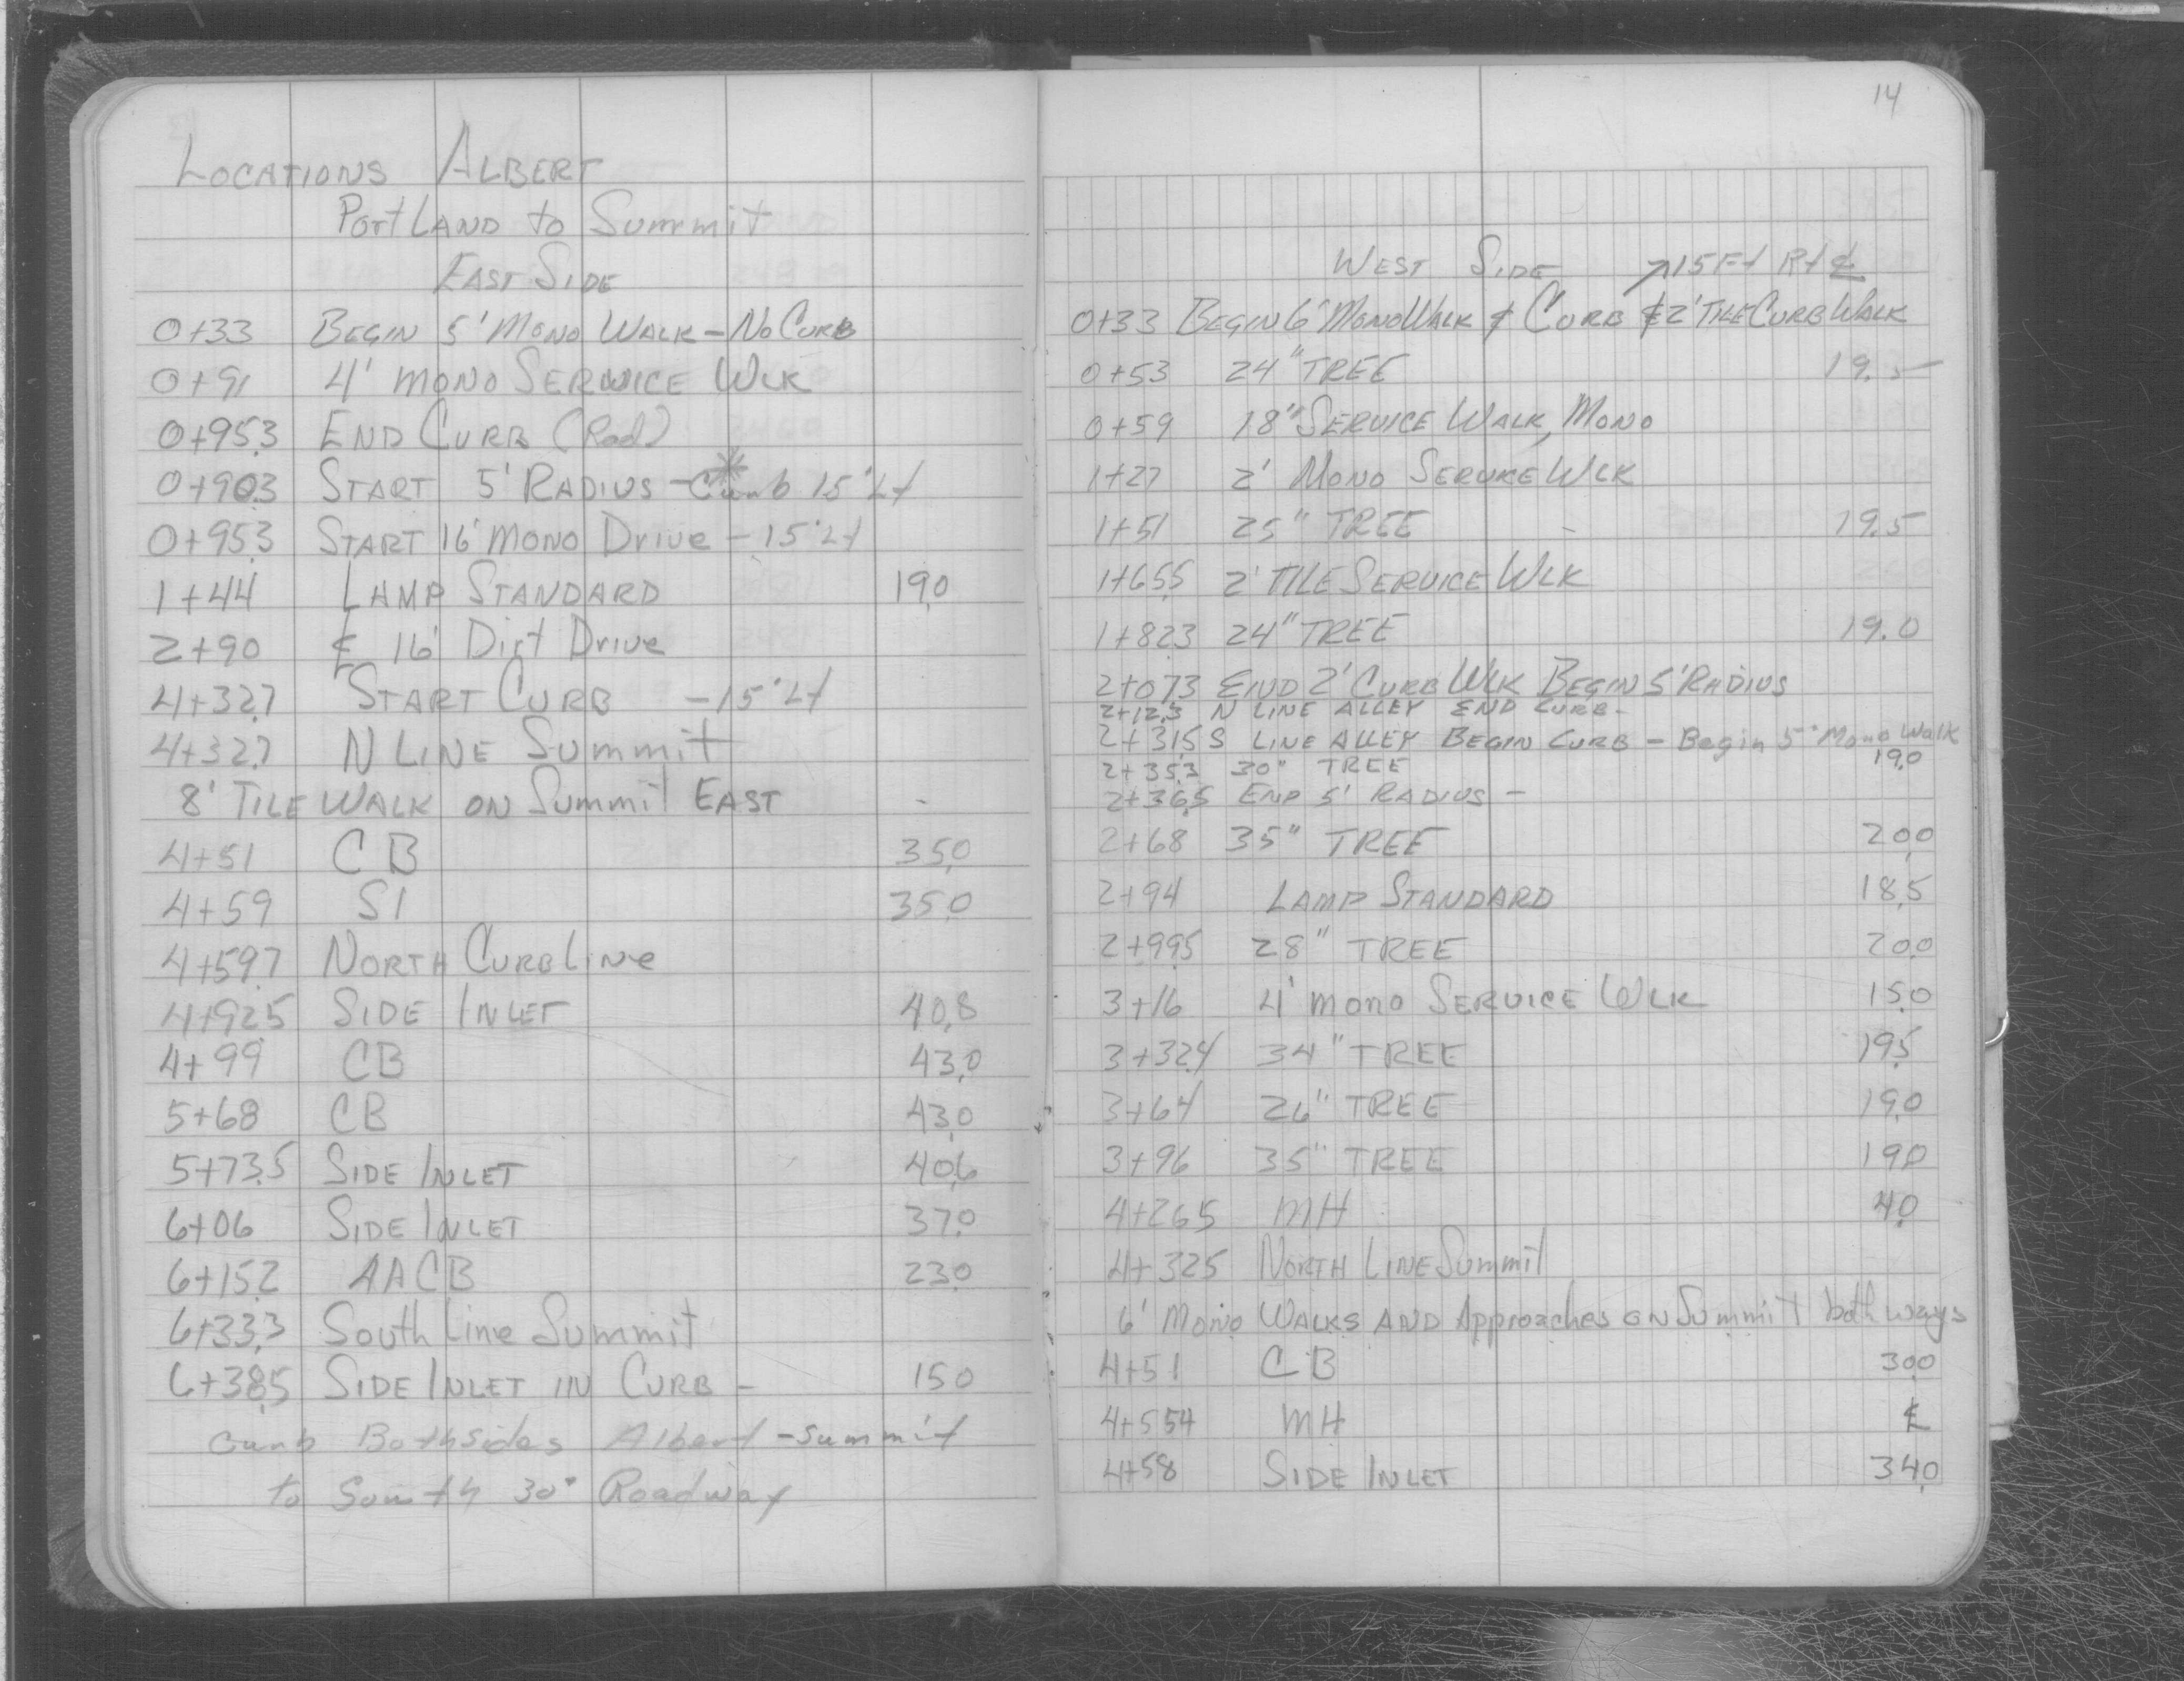 LOCATIONS ALBERT
PORTLAND to Summit
EAST SIDE
0+33 BEGIN 5' MONO WALK - NO CURB
0+91 4' MONO SERVICE WLK
0+95.3 END CURB (Rad)
0+90.3 START 5' RADIUS - Curb 15' Lt *
0+95.3 START 16' MONO Drive - 15' Lt
1+44 LAMP STANDARD 19.0
2+90 ℄ 16' Dirt Drive
4+32.7 START CURB - 15' Lt
4+32.7 N LINE Summit
8' TILE WALK ON Summit EAST -
4+51 CB 35.0
4+59 SI 35.0
4+59.7 NORTH CURB LINE
4+92.5 SIDE INLET 40.8
4+99 CB 43.0
5+68 CB 43.0
5+73.5 SIDE INLET 40.6
6+06 SIDE INLET 37.0
6+15.2 AACB 23.0
6+33.3 South Line Summit
6+38.5 SIDE INLET IN CURB - 15.0
Curb Bothsides Albert - Summit
to South 30' Roadway
14
WEST SIDE ↗15 Ft Rt ℄
0+33 BEGIN 6' MONO WALK & CURB & 2' TILE CURB WALK
0+53 24" TREE 19.5
0+59 18" SERVICE WALK, MONO
1+27 2' MONO SERVICE WLK
1+51 25" TREE - 19.5
1+65.5 2' TILE SERVICE WLK
1+82.3 24" TREE 19.0
2+07.3 END 2' CURB WLK BEGIN 5' RADIUS
2+12.3 N LINE ALLEY END CURB -
2+31.5 S LINE ALLEY BEGIN CURB - Begin 5' Mono Walk
2+35.3 30" TREE 19.0
2+36.5 END 5' RADIUS -
2+68 35" TREE 20.0
2+94 LAMP STANDARD 18.5
2+99.5 28" TREE 20.0
3+16 4' mono SERVICE WLK 15.0
3+32.4 34" TREE 19.5
3+64 26" TREE 19.0
3+96 35" TREE 19.0
4+26.5 MH 4.0
4+32.5 NORTH LINE Summit
6' Mono WALKS AND Approaches ON Summit both ways
4+51 CB 30.0
4+55.4 MH ℄
4+58 SIDE INLET 34.0